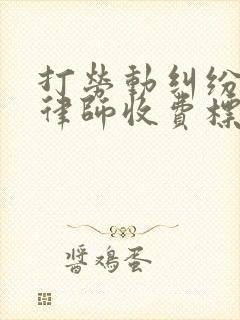 打勞動糾紛
律師收費標
醬鴻蛋